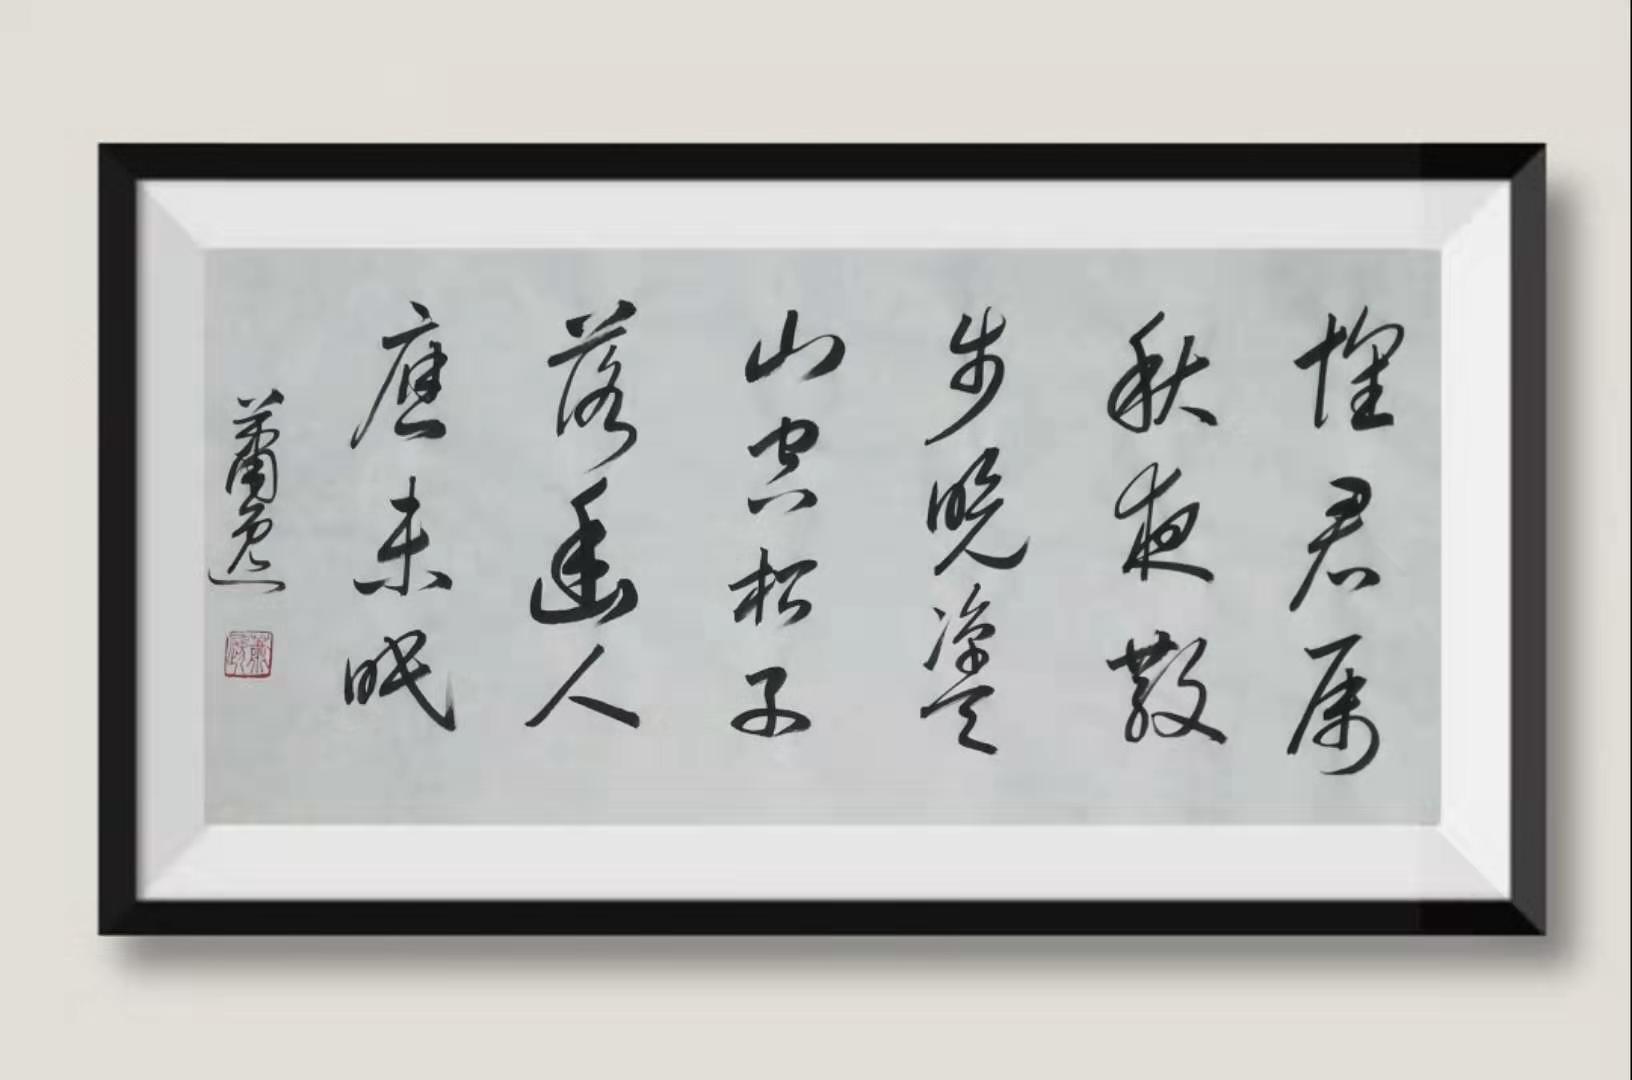 懷君属
秋夜散
步晚凉天
山空松子
落幽人
應未眠
蕭逸